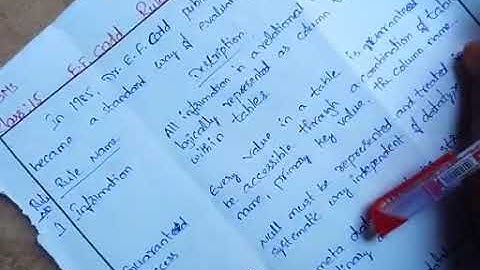 E.F. Codd Rul
In 1985, Dr. E.F. Codd publi
became a standard way of evalua
Rule Name
Description
1 Information
All information in a relational
logically represented as column
within tables.
Guaranteed
Every value in a table is guaranteed
to be accessible through a combination of table
name, primary key value. The column name..
Null must be represented and treated in
systematic way independent of datatype